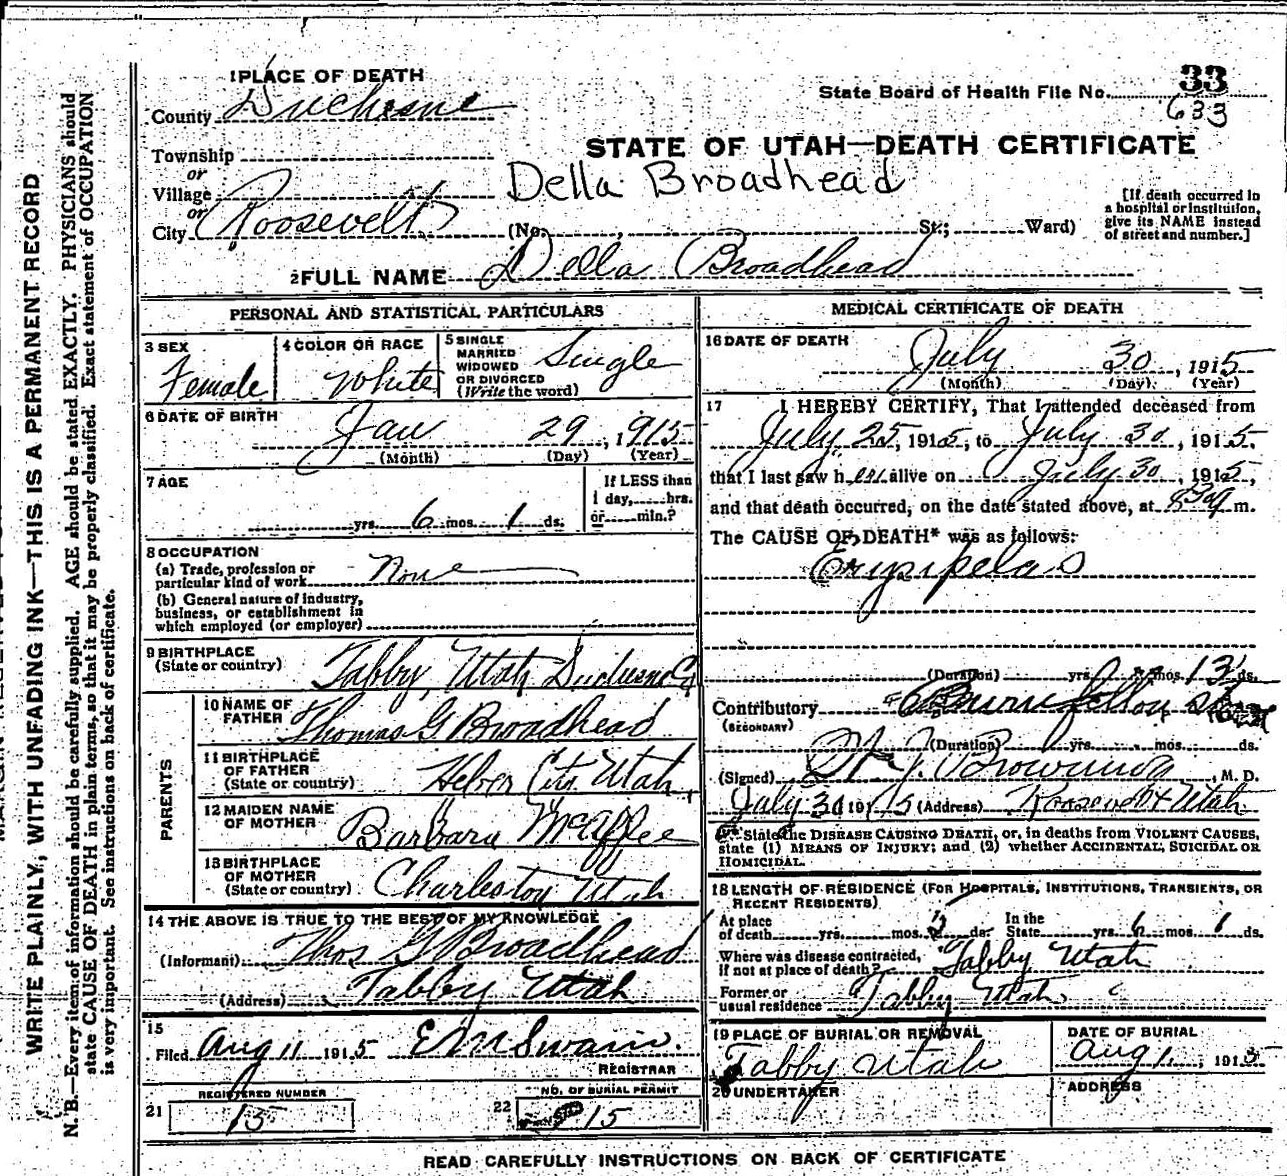 1 PLACE OF DEATH
County Duchesne
33
State Board of Health File No.
633
Township
STATE OF UTAH—DEATH CERTIFICATE
or
Village
Della Broadhead
or
City Roosevelt (No. , St.; Ward)
[If death occurred in a hospital or institution, give its NAME instead of street and number.]
2 FULL NAME Della Broadhead
PERSONAL AND STATISTICAL PARTICULARS
3 SEX
Female
4 COLOR OR RACE
White
5 SINGLE
MARRIED
WIDOWED
OR DIVORCED
(Write the word)
Single
6 DATE OF BIRTH
Jan 29, 1915
(Month) (Day) (Year)
7 AGE
yrs. 6 mos. 1 ds.
If LESS than
1 day, hrs.
or min.?
8 OCCUPATION
(a) Trade, profession or
particular kind of work None
(b) General nature of industry,
business, or establishment in
which employed (or employer)
9 BIRTHPLACE
(State or country) Tabby, Utah Duchesne Co
PARENTS
10 NAME OF
FATHER Thomas G Broadhead
11 BIRTHPLACE
OF FATHER
(State or country) Heber City Utah
12 MAIDEN NAME
OF MOTHER Barbara McAffee
13 BIRTHPLACE
OF MOTHER
(State or country) Charleston Utah
14 THE ABOVE IS TRUE TO THE BEST OF MY KNOWLEDGE
(Informant) Thos G Broadhead
(Address) Tabby Utah
15
Filed Aug 11 1915 E M Swain.
REGISTRAR
REGISTERED NUMBER
21 15
NO. OF BURIAL PERMIT
22 15
MEDICAL CERTIFICATE OF DEATH
16 DATE OF DEATH
July 30, 1915
(Month) (Day) (Year)
17 I HEREBY CERTIFY, That I attended deceased from
July 25, 1915, to July 30, 1915.
that I last saw her alive on July 30, 1915,
and that death occurred, on the date stated above, at m.
The CAUSE OF DEATH* was as follows:
Erysipelas
(Duration) yrs. mos. 13 ds.
Contributory Burn
(SECONDARY)
(Duration) yrs. mos. ds.
(Signed) J. Browning, M. D.
July 30 1915 (Address) Roosevelt Utah
* State the DISEASE CAUSING DEATH, or, in deaths from VIOLENT CAUSES,
state (1) MEANS OF INJURY; and (2) whether ACCIDENTAL, SUICIDAL OR
HOMICIDAL.
18 LENGTH OF RESIDENCE (FOR HOSPITALS, INSTITUTIONS, TRANSIENTS, OR
RECENT RESIDENTS)
At place
of death yrs. mos. ds.
In the
State yrs. 6 mos. 1 ds.
Where was disease contracted,
if not at place of death? Tabby Utah
Former or
usual residence Tabby Utah
19 PLACE OF BURIAL OR REMOVAL
Tabby Utah
DATE OF BURIAL
Aug 1, 1915
20 UNDERTAKER
ADDRESS
READ CAREFULLY INSTRUCTIONS ON BACK OF CERTIFICATE
WRITE PLAINLY, WITH UNFADING INK—THIS IS A PERMANENT RECORD
N. B.—Every item of information should be carefully supplied. AGE should be stated EXACTLY. PHYSICIANS should
state CAUSE OF DEATH in plain terms, so that it may be properly classified. Exact statement of OCCUPATION
is very important. See instructions on back of certificate.